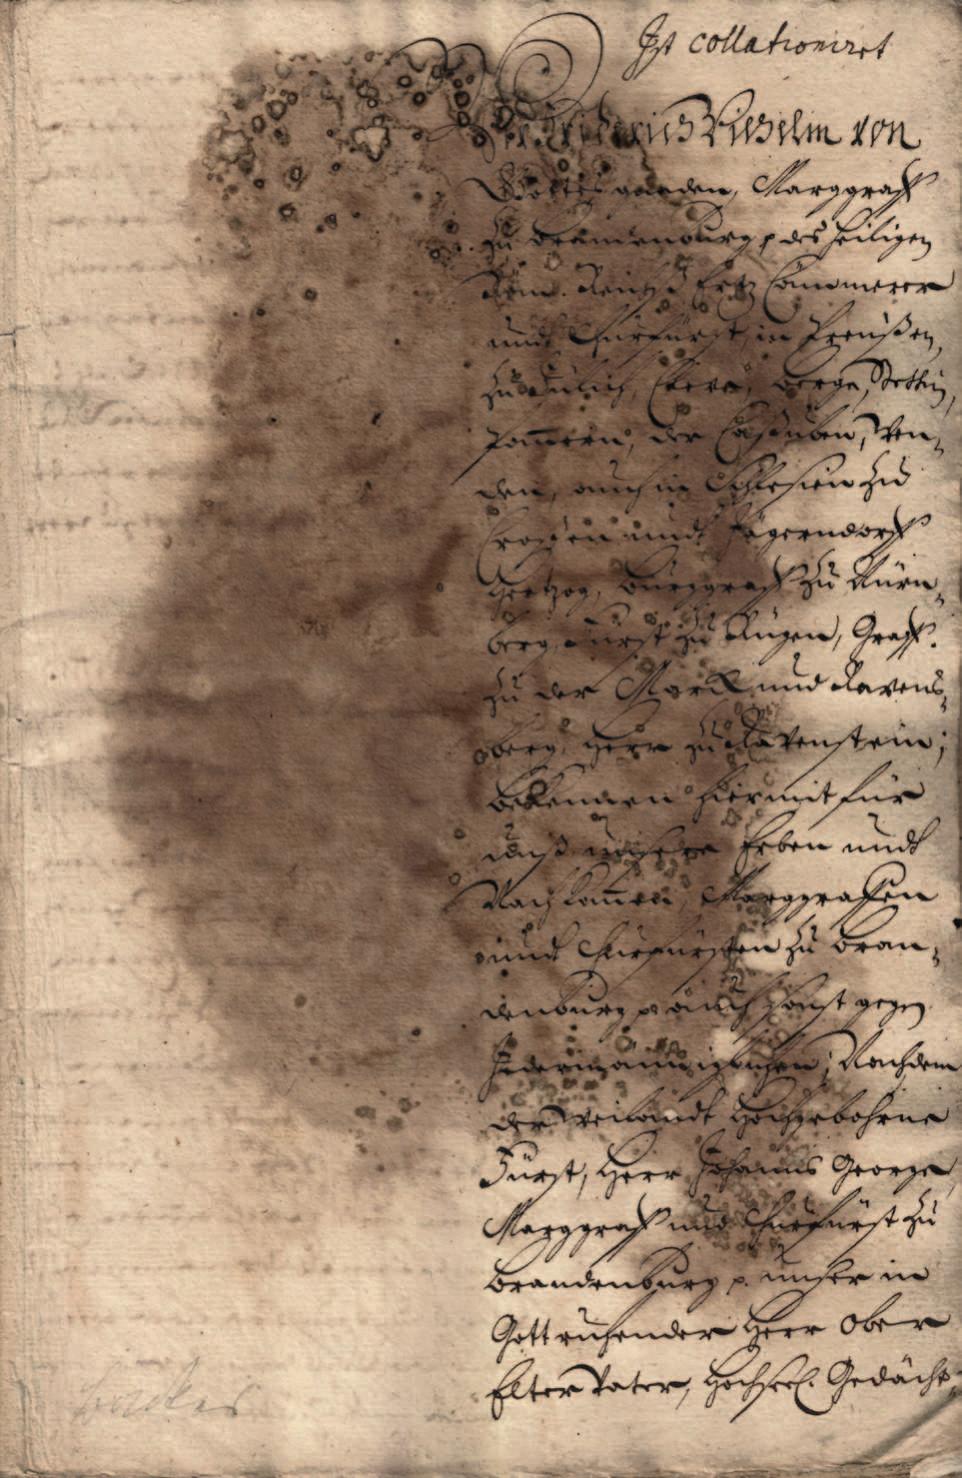 Ist collationiret
Wir Friderich Wilhelm von
Gottes gnaden, Marggraff
zu Brandenburg p des heiligen
Röm. Reichs Ertz Cämmerer
undt Churfürst, in Preüßen,
zu Gülich, Cleve, Berge, Stettin,
Pom̄ern, der Caßuben, Wen„
den, auch in Schlesien zu
Croßen undt Jägerndorff
Hertzog, Burggraff zu Nürn„
berg, Fürst zu Rügen, Graff
zu der Marck und Ravens„
berg, Herr zu Ravenstein;
Bekennen hiermit für
unß unsere Erben undt
Nachkom̄en, Marggraffen
undt Churfürsten zu Bran„
denburg p auch sonst gegen
Jedermänniglichen; Nachdem
der Weilandt Hochgebohrne
Fürst, Herr Johanns George,
Marggraff und Churfürst zu
Brandenburg p. unser in
Gott ruhender Herr Ober
Elter Vater, Hochseel. Gedächt„